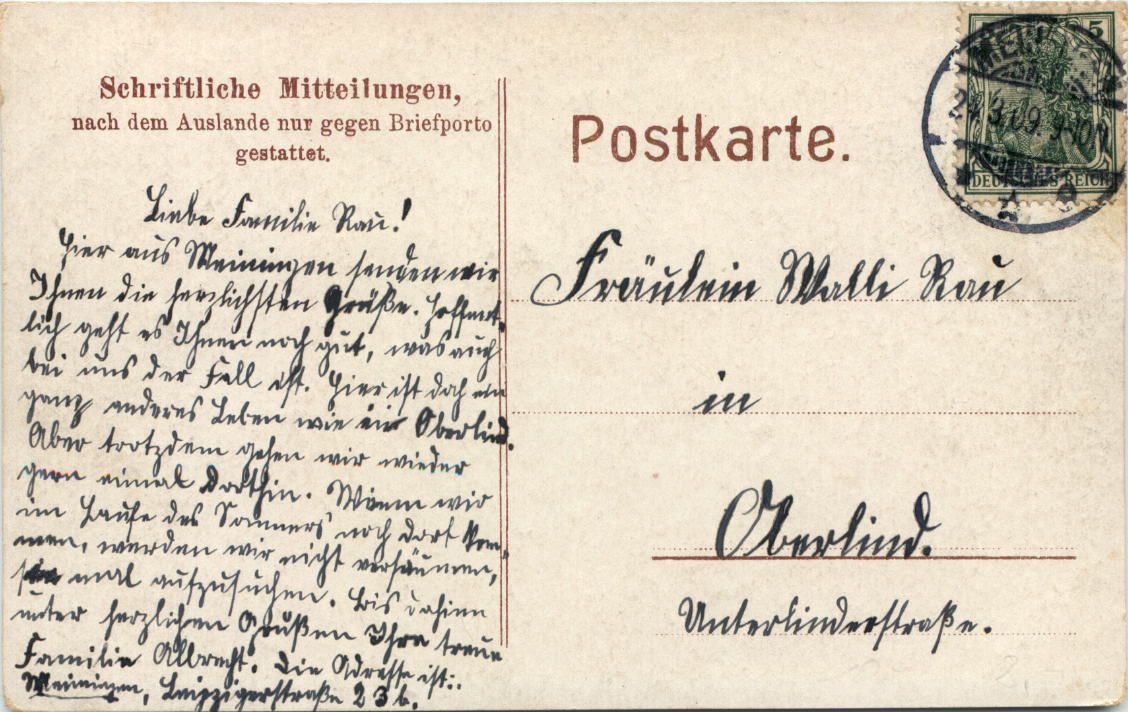 Schriftliche Mitteilungen,
nach dem Auslande nur gegen Briefporto
gestattet.
Postkarte.
5
24.3.09. 9-10
DEUTSCHES REICH
Liebe Familie Rau!
Hier aus Meiningen senden wir
Ihnen die herzlichsten Grüße. Hoffent-
lich geht es Ihnen noch gut, was auch
bei uns der Fall ist. Hier ist doch ein
ganz anderes Leben wie in Oberlind.
Aber trotzdem gehen wir wieder
gern einmal dorthin. Wenn wir
im Laufe des Sommers noch dort kom-
men, werden wir nicht versäumen,
Sie mal aufzusuchen. Bis dahin
unter herzlichen Grüßen Ihre treue
Familie Albrecht. Die Adresse ist:
Meiningen, Leipzigerstraße 23 b.
Fräulein Walli Rau
in
Oberlind.
Unterlinderstraße.